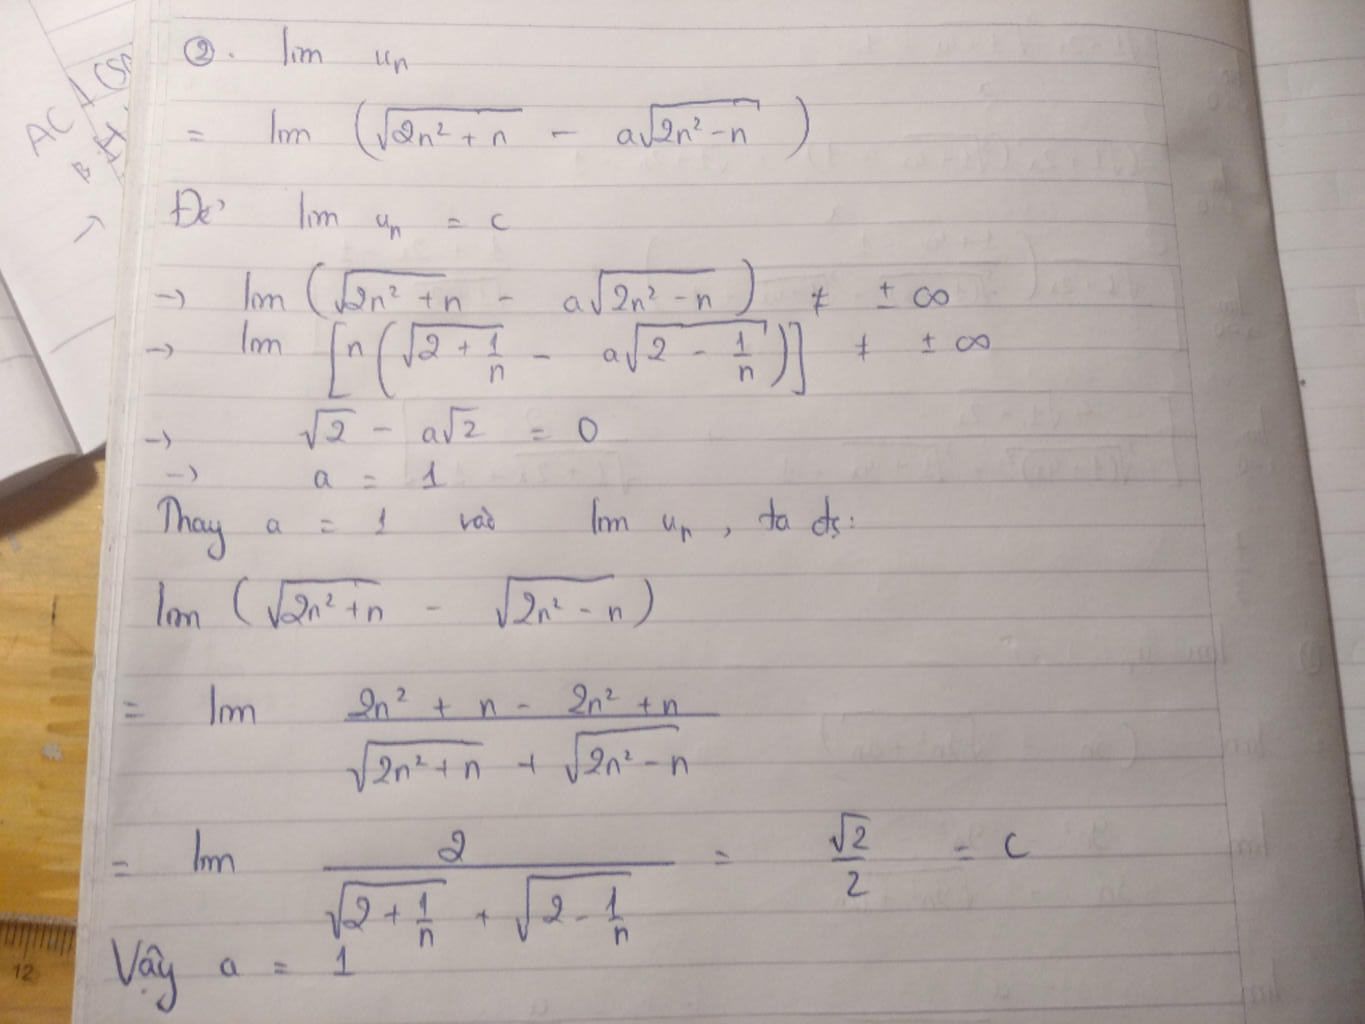 ②. lim uₙ
= lim (√(2n² + n) - a√(2n² - n))
Để lim uₙ = c
→ lim (√(2n² + n) - a√(2n² - n)) ≠ ± ∞
→ lim [n(√(2 + 1/n) - a√(2 - 1/n))] ≠ ± ∞
→ √2 - a√2 = 0
→ a = 1
Thay a = 1 vào lim uₙ, ta đc:
lim (√(2n² + n) - √(2n² - n))
= lim (2n² + n - 2n² + n)/(√(2n² + n) + √(2n² - n))
= lim 2/(√(2 + 1/n) + √(2 - 1/n)) = √2/2 = c
Vậy a = 1
AC
12